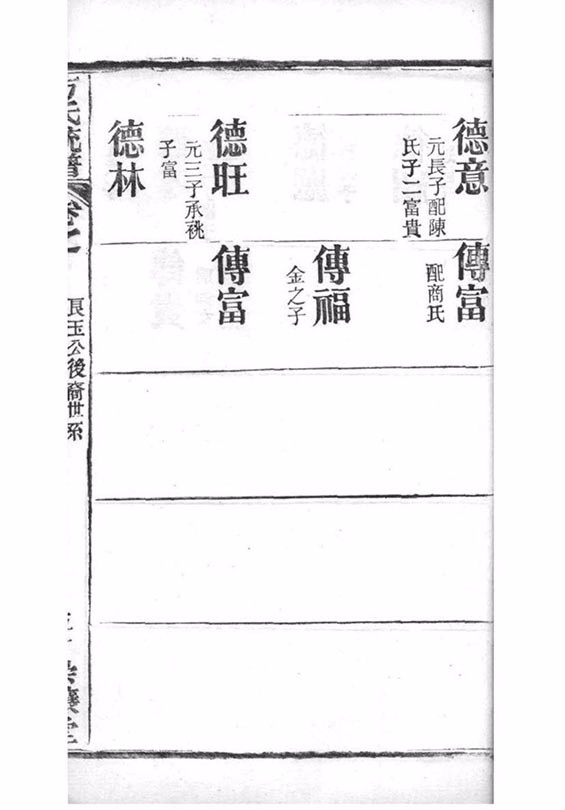 德意
元長子配陳
氏子二富貴
傳富
配商氏
傳福
金之子
德旺
元三子承祧
子富
傳富
德林
氏統譜
卷之
良玉公後裔世系